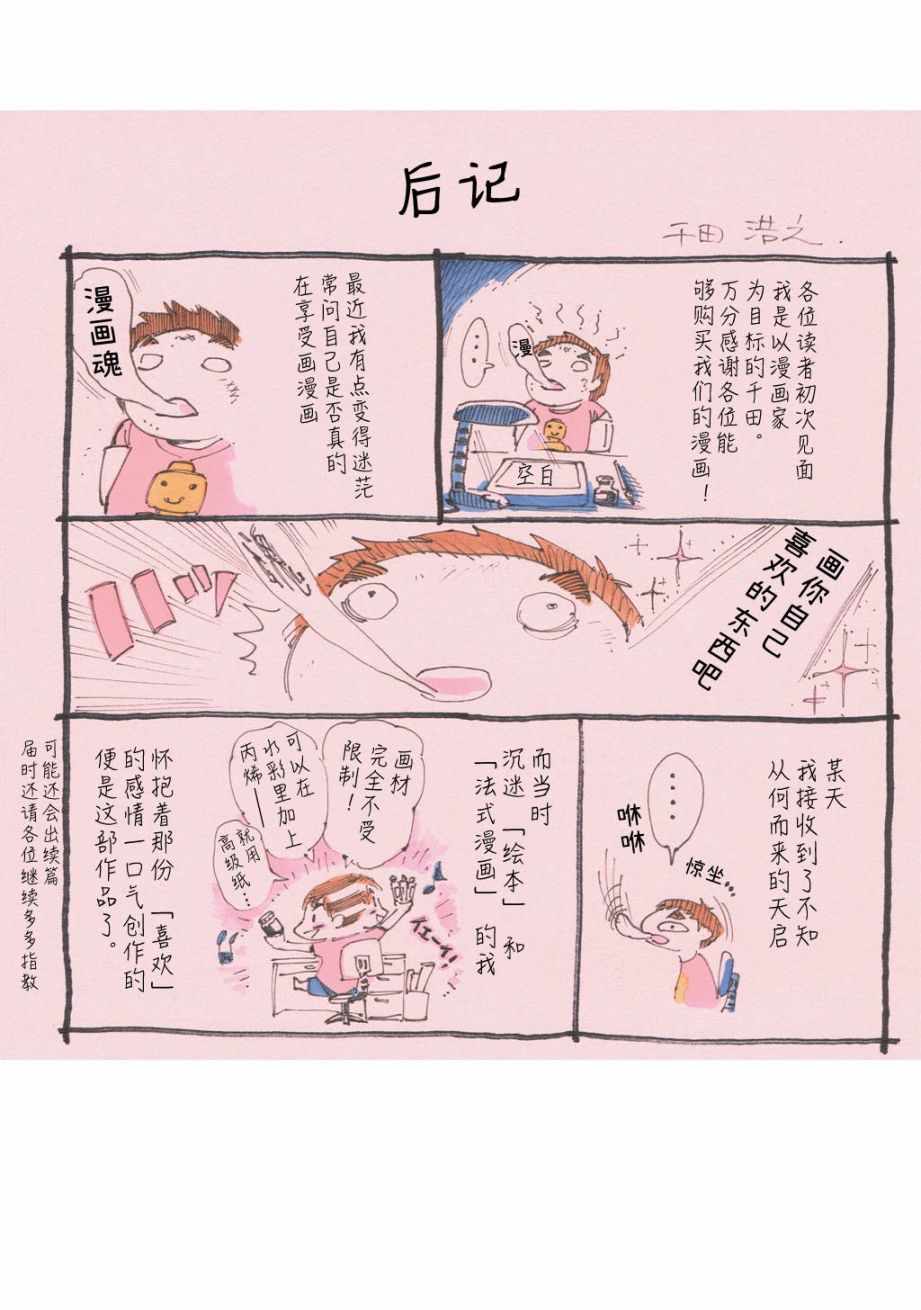 后记
千田 浩之.
各位读者初次见面
我是以漫画家
为目标的千田。
万分感谢各位能
够购买我们的漫画！
漫
····
空白
最近我有点变得迷茫
常问自己是否真的
在享受画漫画
漫画魂
画你自己
喜欢的东西吧
バッ
某天
我接收到了不知
从何而来的天启
·····
咻咻
惊坐…
而当时
沉迷「绘本」和
「法式漫画」的我
画材
完全不受
限制！
可以在
水彩里加上
丙烯——
就用
高级纸…
イエーイ!
怀抱着那份「喜欢」
的感情一口气创作的
便是这部作品了。
可能还会出续篇
届时还请各位继续多多指教